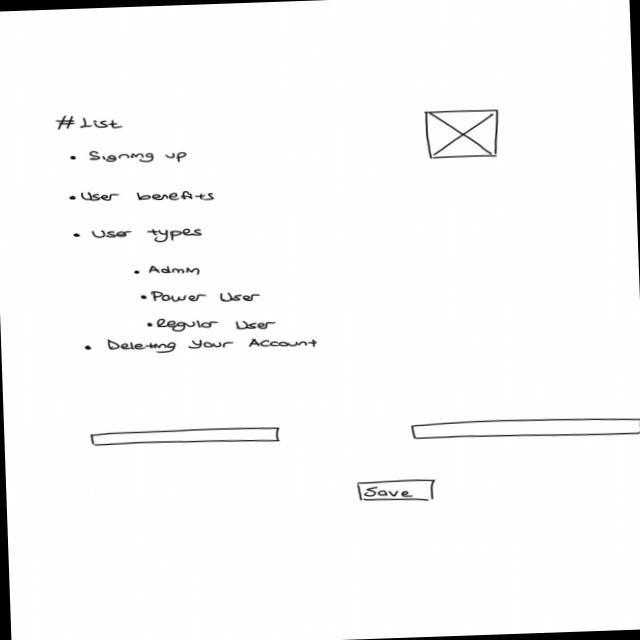 # List
• Signing up
• User benefits
• User types
• Admin
• Power User
• Regular User
• Deleting Your Account
Save